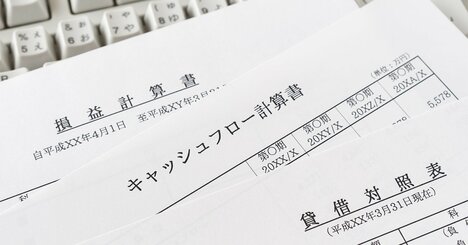 損益計算書
自平成XX年4月1日 至平成XY年3月31
キャッシュフロー計算書
(単位：万円)
第〇期
20XX/X
第〇期
20XY/X
第〇期
20XZ/X
第〇期
20XA/X
5,578
貸借対照表
(平成XX年3月31日現在)